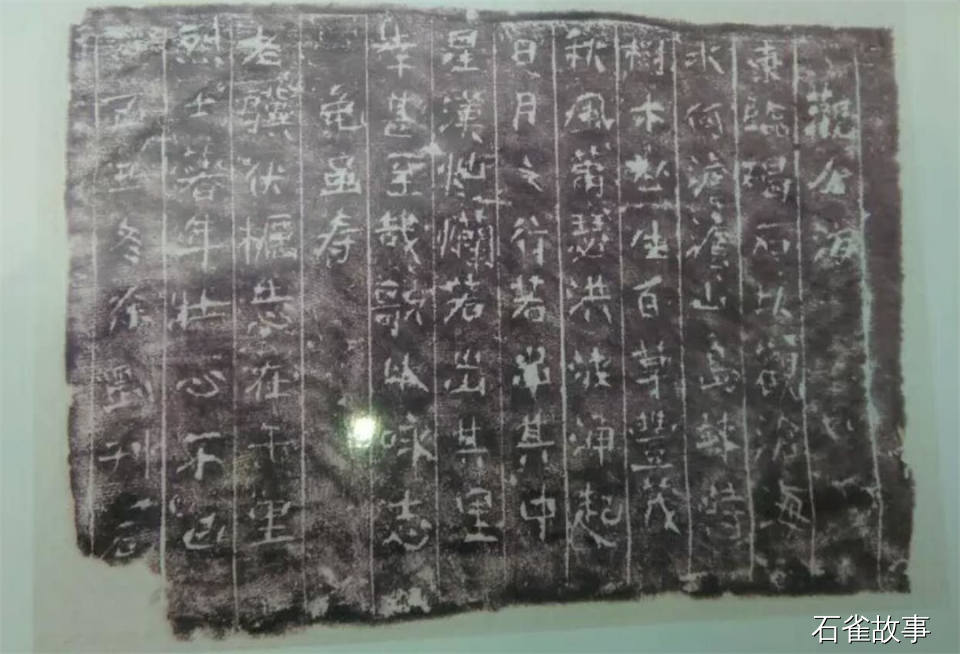 觀仓海
東臨碣石以觀滄海
水何澹澹山島竦峙
樹木丛生百草豐茂
秋風蕭瑟洪波涌起
日月之行若出其中
星漢灿爛若出其里
幸甚至哉歌以咏志
龟虽寿
老驥伏櫪志在千里
烈士暮年壮心不已
丑冬刊石
石雀故事